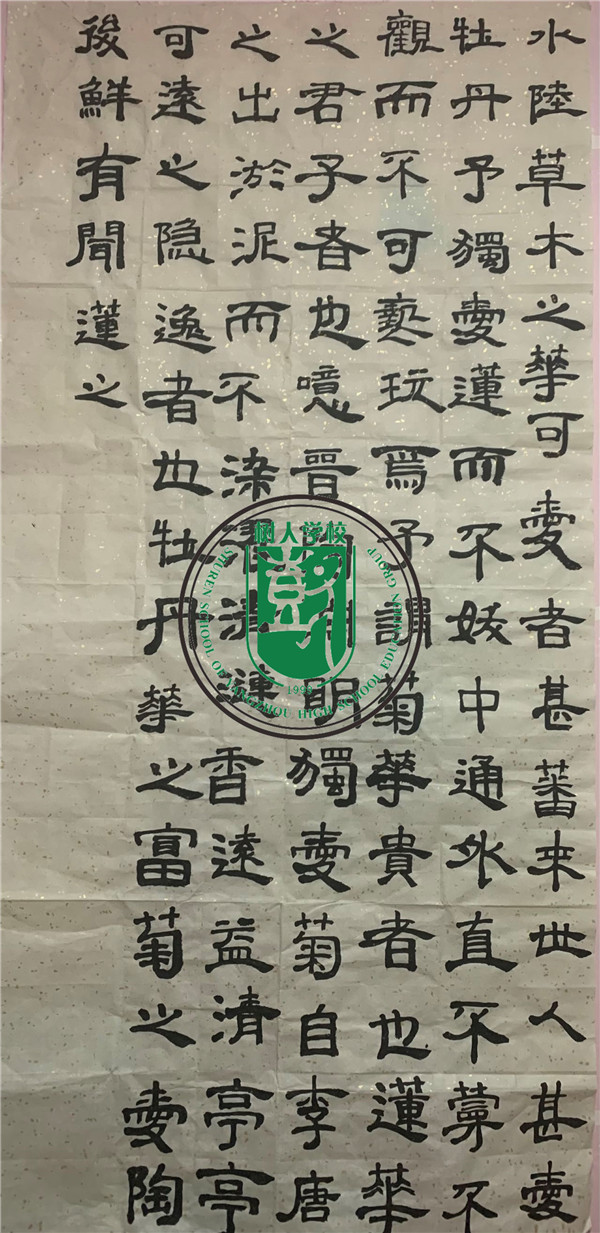 水陸草木之華可愛者甚蕃来世人甚愛
牡丹予獨愛蓮而不妖中通外直不蔓不
觀而不可褻玩焉予謂菊華貴者也蓮華
之君子者也噫晉陶淵明獨愛菊自李唐
之出淤泥而不染濯清漣香遠益清亭亭
可遠之隐逸者也牡丹華之富菊之愛陶
後鮮有聞蓮之
树人学校
SHUREN SCHOOL OF YANGZHOU HIGH SCHOOL EDUCATION GROUP